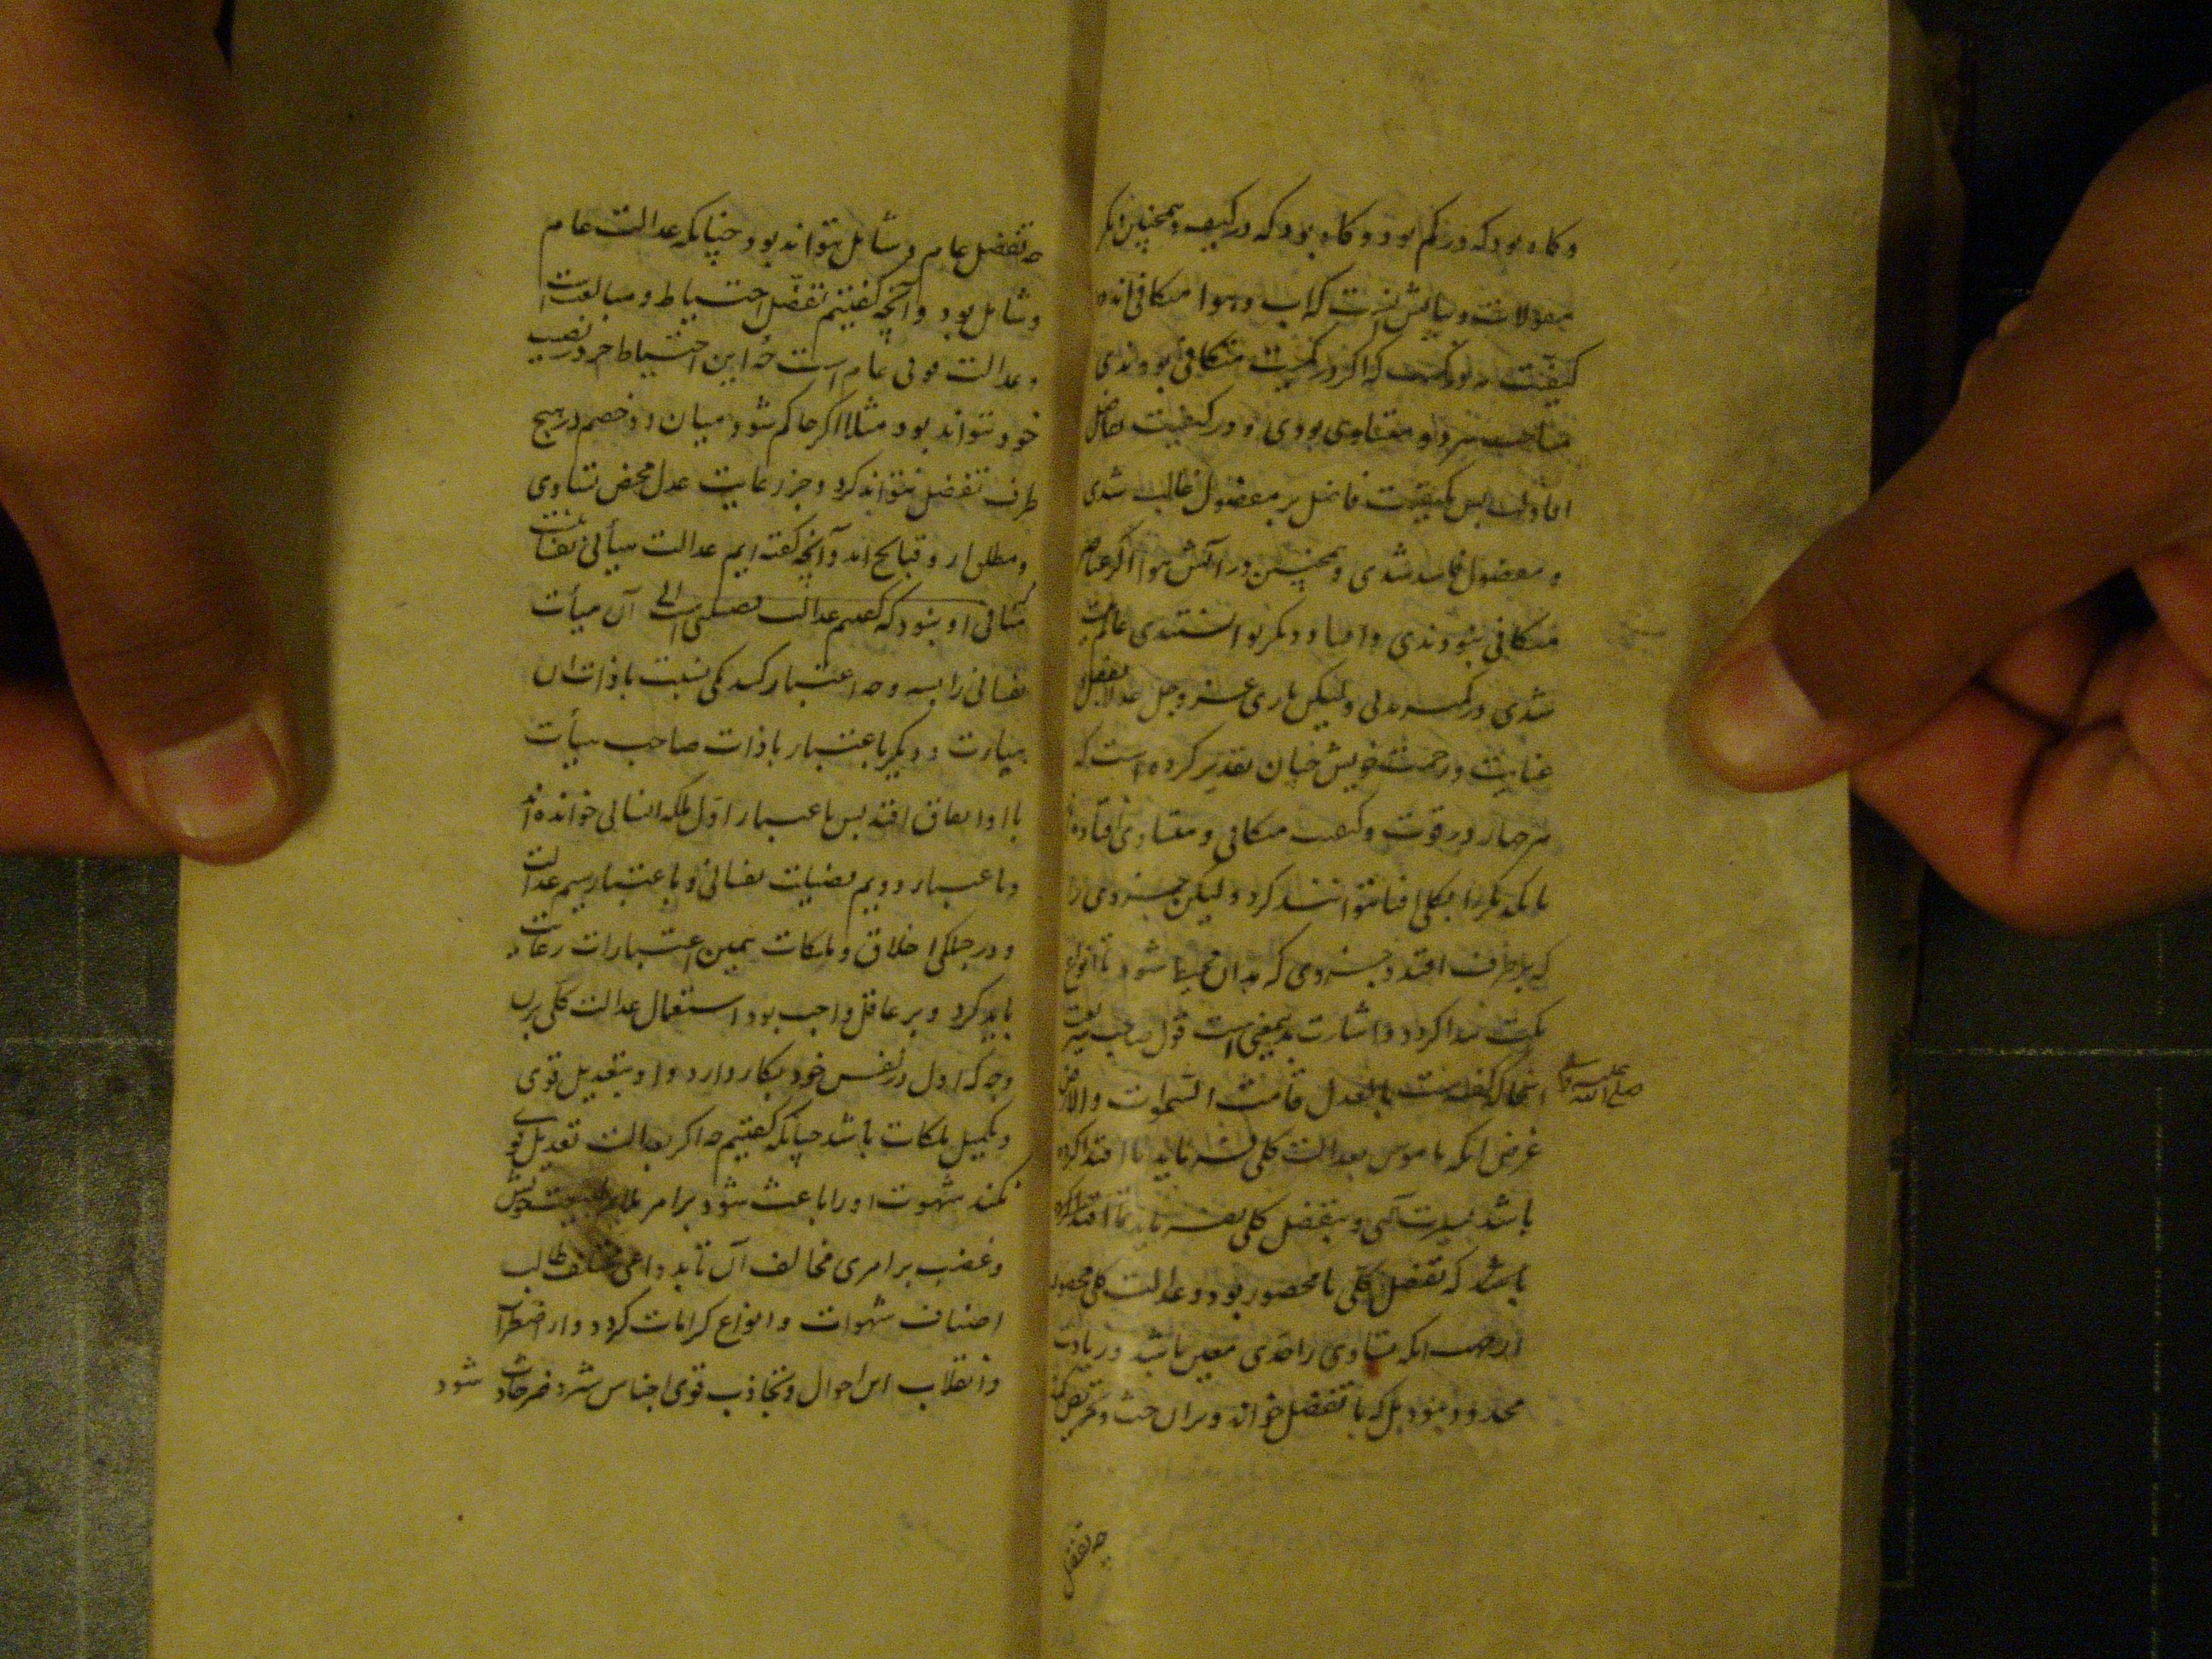 و کاه بود که در کم بود و کاه بود که در کیف و همچنین دیکر
مقولات و بیانش آنست که آب و هوا متکافی‌اند در
کیفیّت نه در کمیت که اکر در کمیت متکافی بودندی
مساحت هر دو متساوی بودی و در کیفیت تفاضل
افتادی پس کیفیت فاضل بر مفضول غالب شدی
و مفضول فاسد شدی و همچنین در آتش و هوا اکر عناصر
متکافی نبودندی و افناء یکدیکر توانستندی عالم نیست
شدی در کمتر مدتی ولیکن باری عز و جل بفضل
عنایت و رحمت خویش چنان تقدیر کرده است که
هر چهار در قوت و کیفیت متکافی و متساوی افتاده‌اند
تا یکدیکر را بکلی افنا نتوانند کرد ولیکن جزوی را
که بر طرف افتد و جزوی که بدان محیط شود تا انواع
حکمت پیدا کردد و اشارت بدین معنی است قول صاحب شریعت
صلی الله علیه و آله
آنجا که کفته است بالعدل قامت السّموات والارض
غرض آنکه ناموس بعدالت کلی فرماید تا اقتدا کرده
باشد بسیرت آلهی و بتفضل کلی نفرماید تا اقتدا کرده
باشد که تفضل کلّی نامحصور بود و عدالت کلی محصور
از جهت آنکه تساوی را حدّی معین باشد و زیادت
محدود نبود بلکه با تفضل خواند و بران حث و تحریض کند
چه تفضل
چه تفضل عام و شامل نتواند بود چنانکه عدالت عام
و شامل بود و آنچه کفتیم تفضّل احتیاط و مبالغت است
در عدالت قولی عام است چه این احتیاط جز در نصیب
خود نتواند بود مثلا اکر حاکم شود میان دو خصم در هیچ
طرف تفضل نتواند کرد و جز رعایت عدل محض و تساوی
مطلق ازو قبایح آید و آنچه کفته‌ایم عدالت هیأتی نفسانیست
منافی او نبود که کفتیم عدالت فضیلتی است الی آن هیأت
نفسانی را بسه وجه اعتبار کنند یکی نسبت با ذات آن
هیأت و دیکر باعتبار با ذات صاحب هیأت
با او اتفاق افتد پس باعتبار اوّل ملکه انسانی خوانده‌اند
و باعتبار دویم فضیلت نفسانی و باعتبار سیم عدالت
و در جملکی اخلاق و ملکات همین اعتبارات رعایت
باید کرد و بر عاقل واجب بود استعمال عدالت کلّی بران
وجه که اول در نفس خود بکار دارد و او بتعدیل قوی
و تکمیل ملکات باشد چنانکه کفتیم چه اکر بعدالت تعدیل قوی
نکند شهوت او را باعث شود بر امر ملایم طبیعت خویش
و غضب بر امری مخالف آن تا بدواعی مختلف طالب
اصناف شهوات و انواع کرامات کردد و از اضطراب
و انقلاب این احوال و تجاذب قوی اجناس شر و ضرر حادث شود